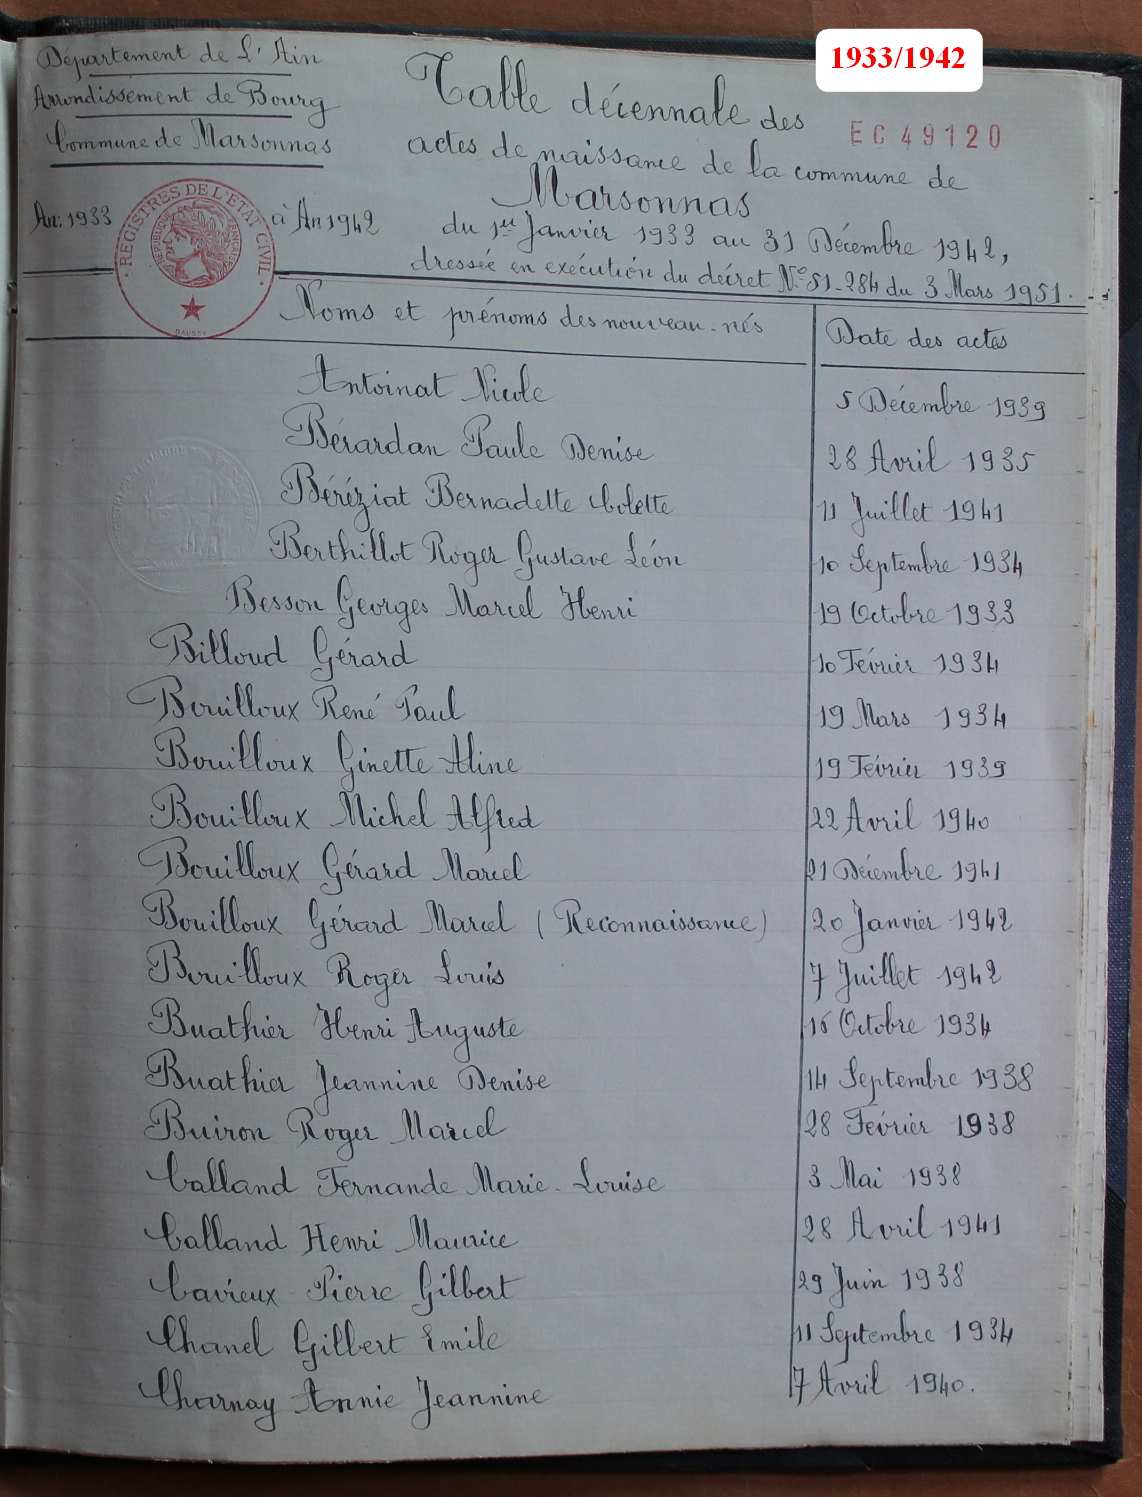 1933/1942
Département de L'Ain
Arrondissement de Bourg
Commune de Marsonnas
An. 1933 à An 1942
REGISTRES DE L'ETAT CIVIL
REPUBLIQUE FRANÇAISE
DAUSSY
Table décennale des
EC 49120
actes de naissance de la commune de
Marsonnas
du 1er Janvier 1933 au 31 Décembre 1942,
dressée en exécution du décret No 51-284 du 3 Mars 1951.
Noms et prénoms des nouveau-nés Date des actes
Antoinat Nicole 5 Décembre 1939
Bérardan Paule Denise 28 Avril 1935
Béréziat Bernadette Colette 11 Juillet 1941
Berthillot Roger Gustave Léon 10 Septembre 1934
Besson Georges Marcel Henri 19 Octobre 1933
Billoud Gérard 10 Février 1934
Bouilloux René Paul 19 Mars 1934
Bouilloux Ginette Aline 19 Février 1939
Bouilloux Michel Alfred 22 Avril 1940
Bouilloux Gérard Marcel 21 Décembre 1941
Bouilloux Gérard Marcel (Reconnaissance) 20 Janvier 1942
Bouilloux Roger Louis 7 Juillet 1942
Buathier Henri Auguste 16 Octobre 1934
Buathier Jeannine Denise 14 Septembre 1938
Buiron Roger Marcel 28 Février 1938
Calland Fernande Marie-Louise 3 Mai 1938
Calland Henri Maurice 28 Avril 1941
Cavieux Pierre Gilbert 29 Juin 1938
Chanel Gilbert Emile 11 Septembre 1934
Charnay Annie Jeannine 7 Avril 1940.